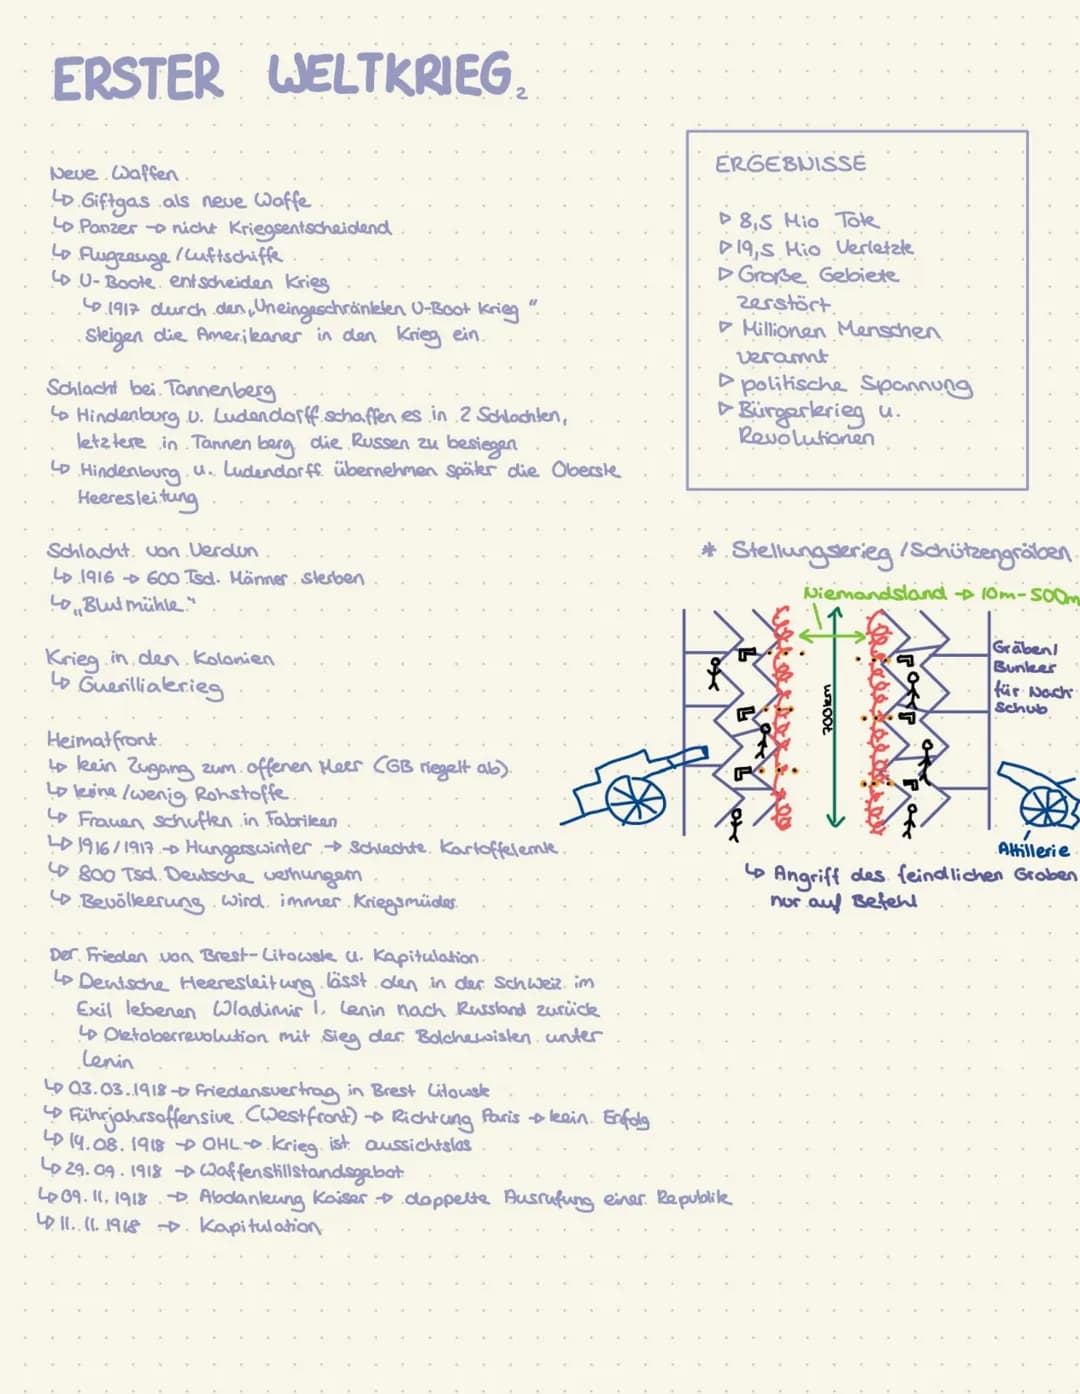 ERSTER WELTKRIEG 2
Neue Waffen
↳ Giftgas als neue Waffe
↳ Panzer → nicht Kriegsentscheidend
↳ Flugzeuge / Luftschiffe
↳ U-Boote entscheiden Krieg
↳ 1917 durch den „Uneingeschränkten U-Boot Krieg"
steigen die Amerikaner in den Krieg ein
Schlacht bei Tannenberg
↳ Hindenburg u. Ludendorff schaffen es in 2 Schlachten,
letztere in Tannenberg die Russen zu besiegen
↳ Hindenburg u. Ludendorff übernehmen später die Oberste
Heeresleitung
Schlacht von Verdun
↳ 1916 → 600 Tsd. Männer sterben
↳ „Blutmühle"
Krieg in den Kolonien
↳ Guerilliakrieg
Heimatfront
↳ kein Zugang zum offenen Meer (GB riegelt ab)
↳ keine / wenig Rohstoffe
↳ Frauen schuften in Fabriken
↳ 1916/1917 → Hungerswinter → Schlechte Kartoffelernte
↳ 800 Tsd. Deutsche verhungern
↳ Bevölkerung wird immer Kriegsmüder
Der Frieden von Brest-Litowsk u. Kapitulation
↳ Deutsche Heeresleitung lässt den in der Schweiz im
Exil lebenen Wladimir I. Lenin nach Russland zurück
↳ Oktoberrevolution mit Sieg der Bolchewisten unter
Lenin
↳ 03.03.1918 → Friedensvertrag in Brest Litowsk
↳ Führjahrsoffensive (Westfront) → Richtung Paris → kein Erfolg
↳ 14.08.1918 → OHL → Krieg ist aussichtslos
↳ 29.09.1918 → Waffenstillstandsgebot
↳ 09.11.1918 → Abdankung Kaiser → doppelte Ausrufung einer Republik
↳ 11.11.1918 → Kapitulation
ERGEBNISSE
▷ 8,5 Mio Tote
▷ 19,5 Mio Verletzte
▷ Große Gebiete
zerstört
▷ Millionen Menschen
verarmt
▷ politische Spannung
▷ Bürgerkrieg u.
Revolutionen
* Stellungskrieg / Schützengräben
Niemandsland → 10m-500m
700km
Gräben/
Bunker
für Nach-
schub
Attillerie
↳ Angriff des feindlichen Graben
nur auf Befehl